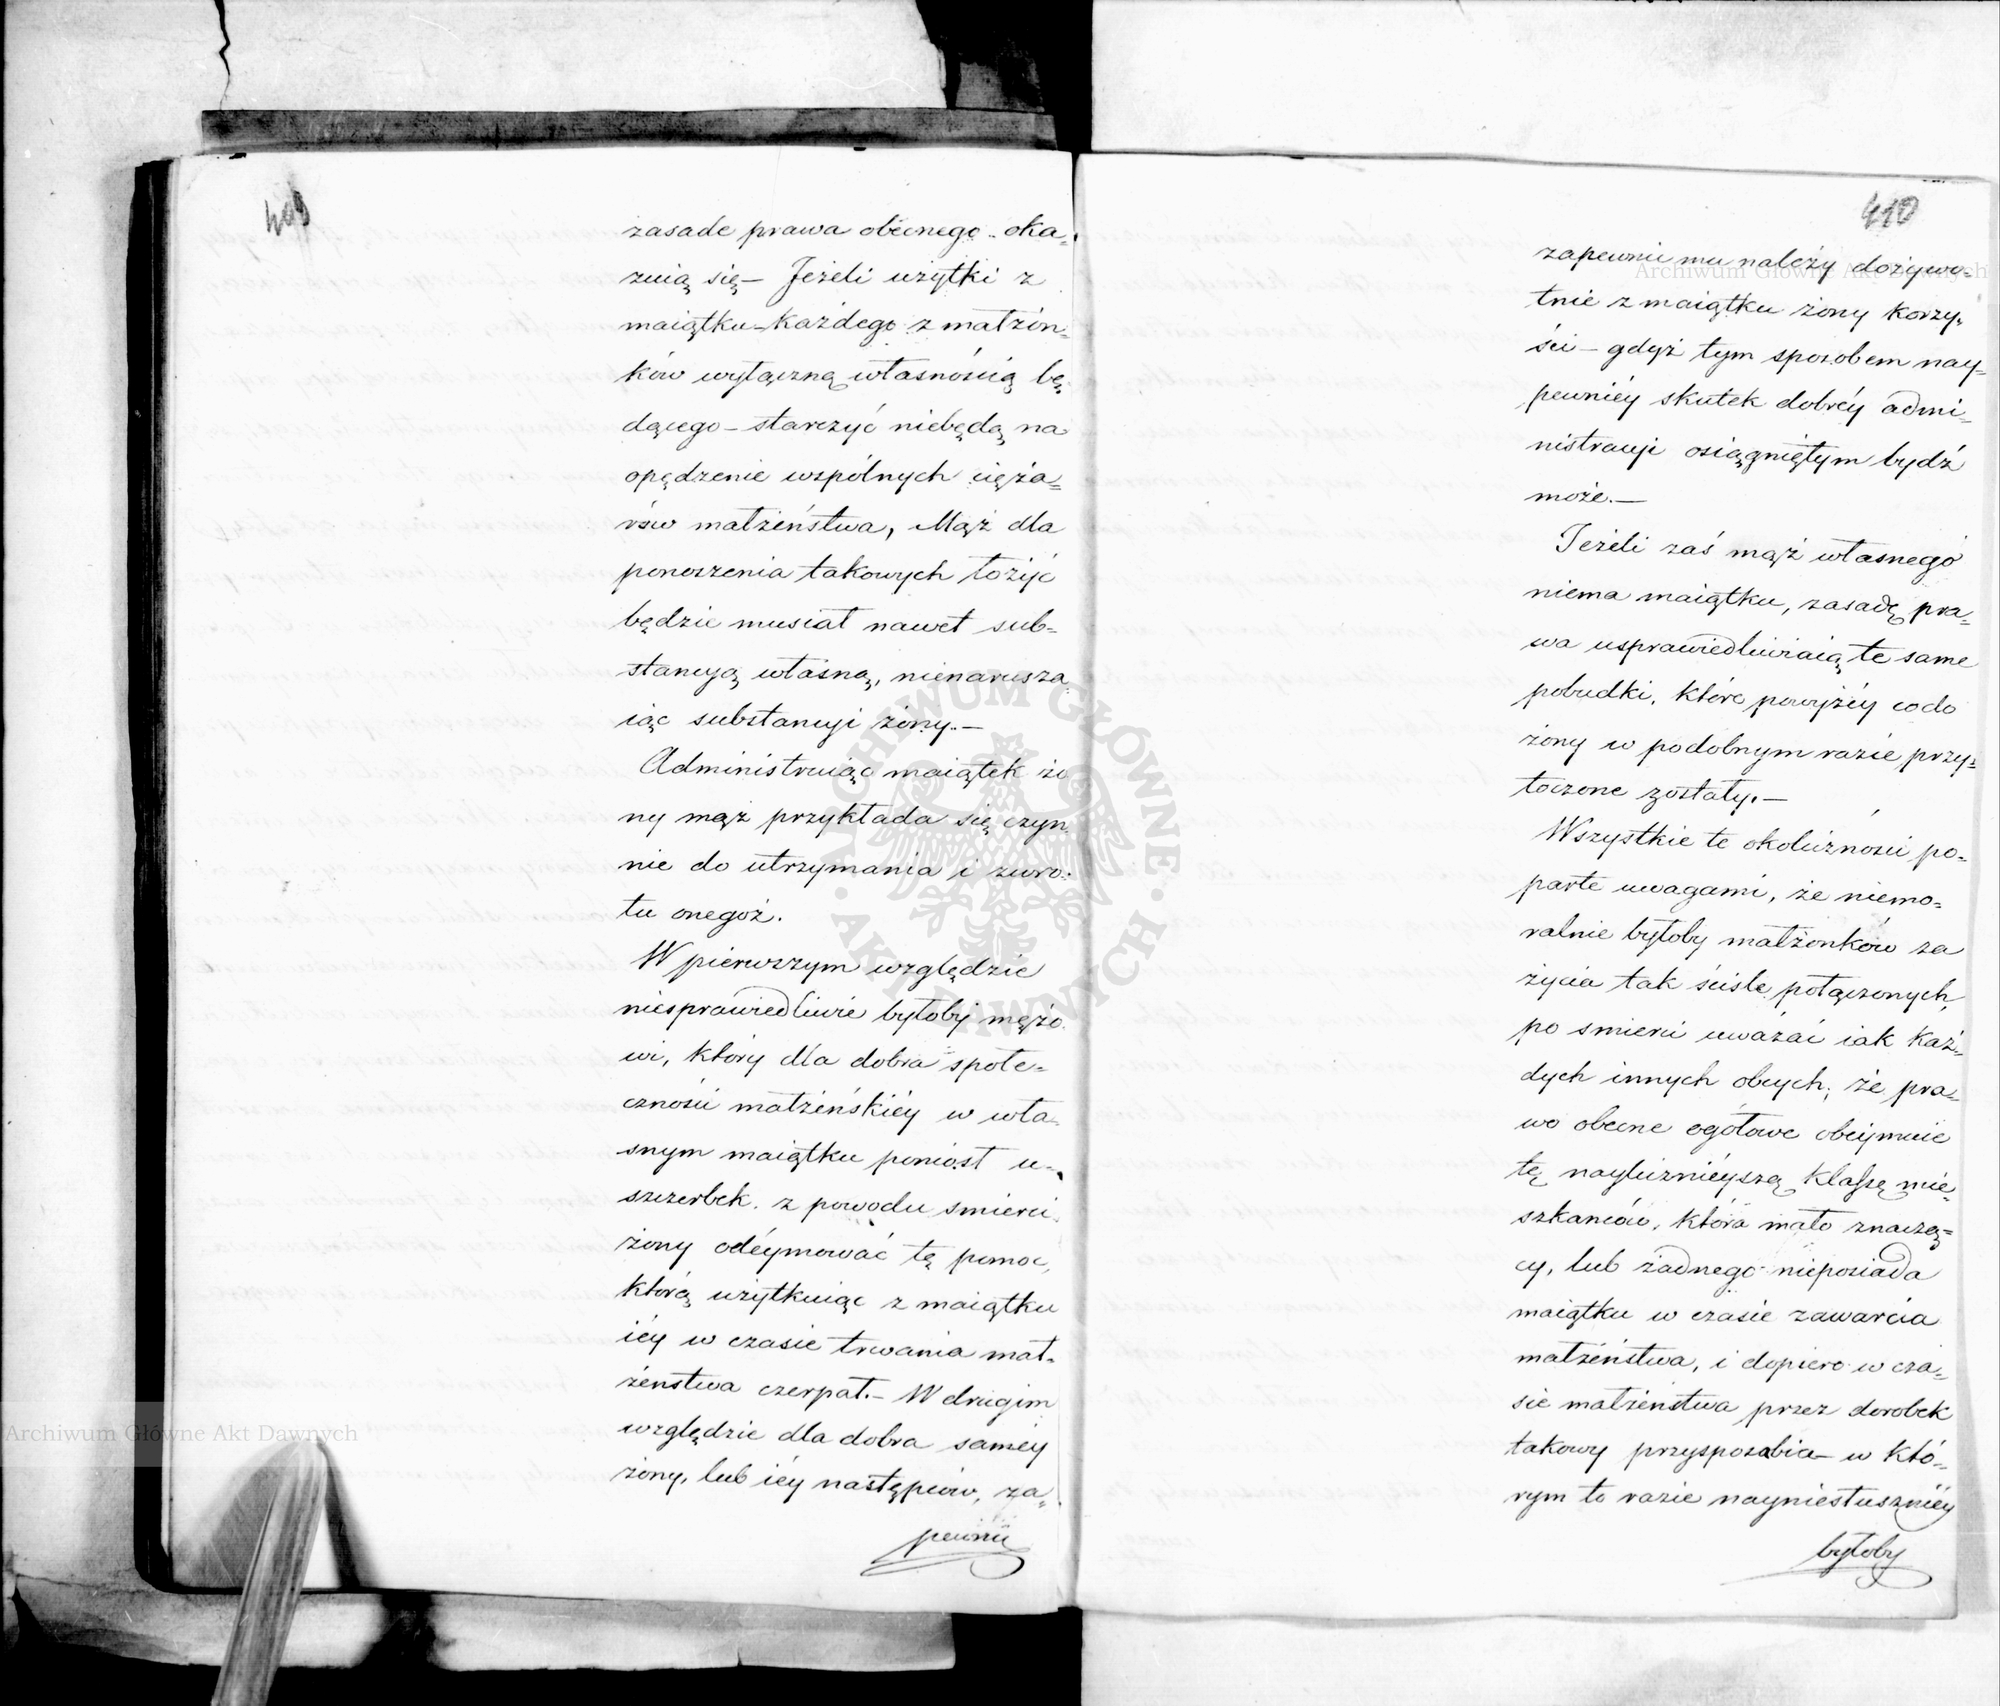 409
zasade prawa obecnego oka=
zuią się – Jeżeli użytki z
maiątku każdego z małżon=
ków wyłączną własnością bę=
dącego – starczyć niebędą na
opędzenie wspólnych cięża=
rów małżeństwa, Mąż dla
ponoszenia takowych łożyć
będzie musiał nawet sub=
stancyą własną, nienarusza
iąc substancyi żony. –
Administruiąc maiątek żo
ny mąż przykłada się czyn
nie do utrzymania i zwro=
tu onegoż.
W pierwszym względzie
niesprawiedliwie byłoby mężo
wi, który dla dobra społe=
czności małżeńskiéy w wła=
snym maiątku poniosł u=
szczerbek. z powodu smierci
żony odéymować tę pomoc,
którą użytkuiąc z maiątku
iéy w czasie trwania mał=
żeństwa czerpał. – W drugim
względzie dla dobra saméy
żony, lub iéy następców, za=
pewnić
410
zapewnić mu należy dożywo=
tnie z maiątku żony korzy=
ści – gdyż tym sposobem nay=
pewniéy skutek dobréy admi=
nistracyi osiągniętym bydź
może. –
Jeżeli zaś mąż własnego
niema maiątku, zasadę pra=
wa usprawiedliwiaią te same
pobudki, które powyżéy co do
żony w podobnym razie przy=
toczone zostały. –
Wszystkie te okoliczności po=
parte uwagami, że niemo=
ralnie byłoby małżonków za
życia tak ściśle połączonych,
po smierci uważać iak każ=
dych innych obcych; że pra=
wo obecne ogółowe obéymuie
tę naylicznieyszą klassę mie=
szkańców, która mało znaczą=
cy, lub żadnego nieposiada
maiątku w czasie zawarcia
małżeństwa, i dopiero w cza=
sie małżeństwa przez dorobek
takowy przysposabia – w któ=
rym to razie nayniesłuszniéy
byłoby
Archiwum Główne Akt Dawnych
Archiwum Główne Akt Dawnych
ARCHIWUM GŁÓWNE
AKT DAWNYCH